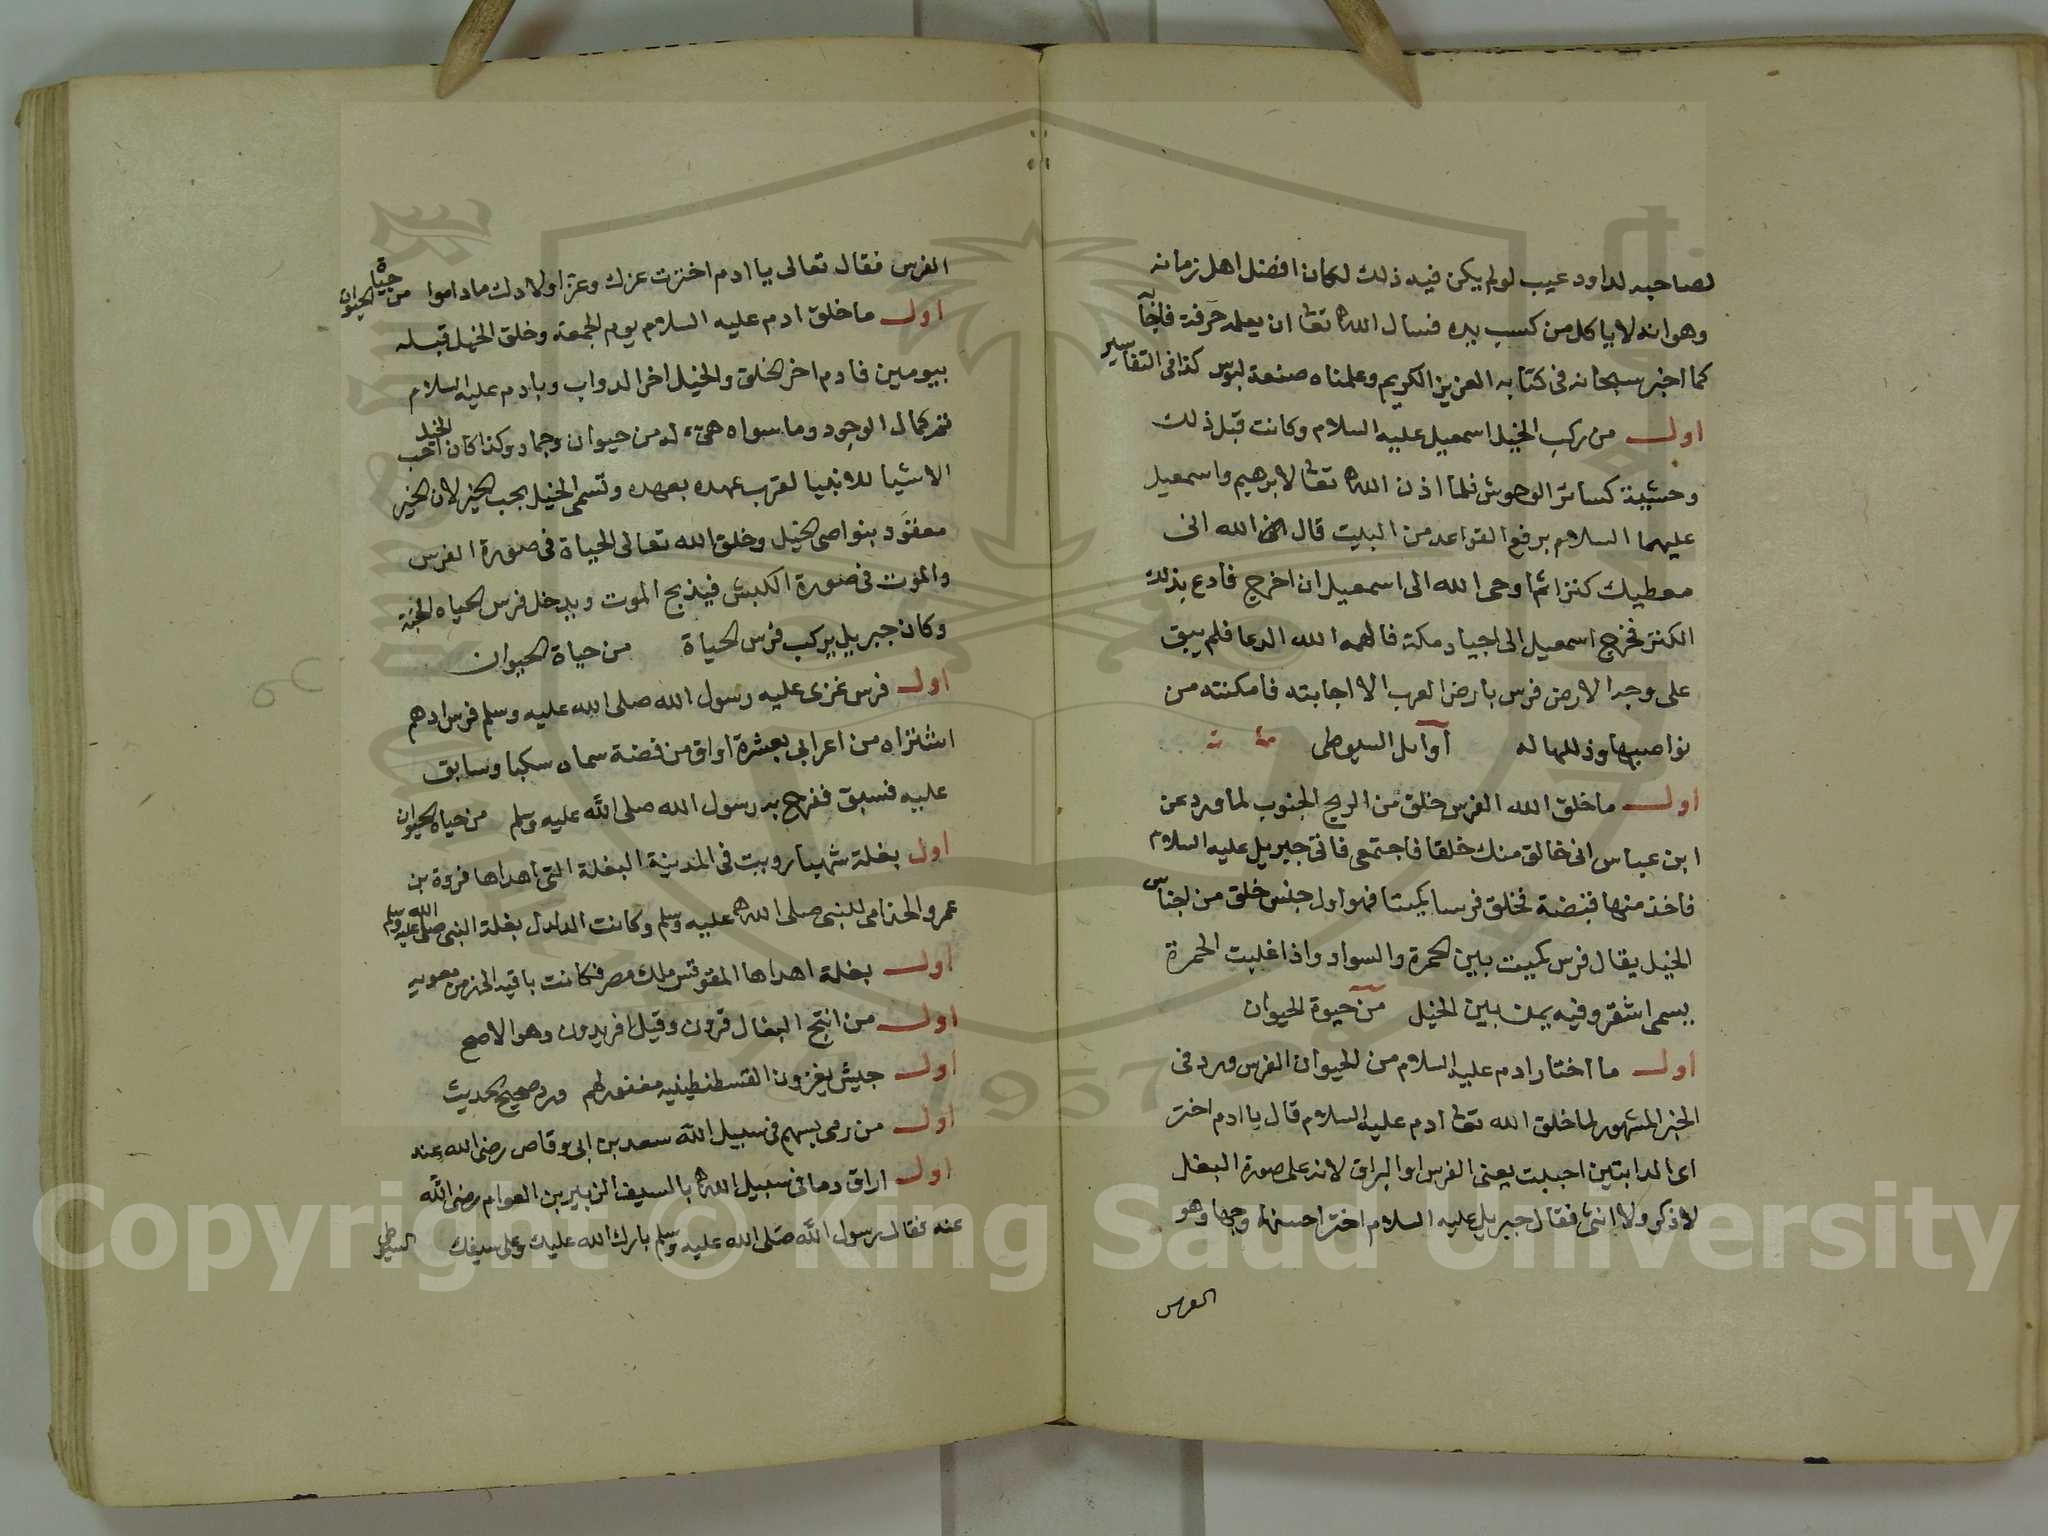 لصاحبه لداود عيب لولم يكن فيه ذلك لكان افضل اهل زمانه
وهوانه لا ياكل من كسب يده فسال الله تعا ان يعلمه حرفة
كما اخبر سبحانه فى كتابه العزيز الكريم وعلمناه صنعة لبوس كذا فى التفاسير
اول من ركب الخيل اسمعيل عليه السلام وكانت قبل ذلك
وحشية كسائر الوحوش فلما اذن الله تعا لابرهيم واسمعيل
عليهما السلام برفع القواعد من البيت قال الله انى
معطيك كنزا ثم اوحى الله الى اسمعيل ان اخرج فادع بذلك
الكنز فخرج اسمعيل الى اجياد مكة فالهمه الله الدعا فلم يبق
على وجه الارض فرس بارض العرب الا اجابته فامكنته من
نواصيها وذللها له اوايل السيوطى
اول ما خلق الله الفرس خلق من الريح الجنوب لما ورد عن
ابن عباس انى خالق منك خلقا فاجتمعى فاتى جبريل عليه السلام
فاخذ منها قبضة فخلق فرسا كميتا فهو اول جنس خلق من اجناس
الخيل يقال فرس كميت بين الحمرة والسواد واذا غلبت الحمرة
يسمى اشقر وفيه يمن بين الخيل من حيوة الحيوان
اول ما اختار ادم عليه السلام من الحيوان الفرس ورد فى
الخبر المشهور لما خلق الله تعا ادم عليه السلام قال يا ادم اختر
اى الدابتين احببت يعنى الفرس او البراق لانه على صورة البغل
لا ذكر ولا انثى فقال جبريل عليه السلام اختر احسنها وجها وهو
الفرس
الفرس فقال تعالى يا ادم اخترت عزك وعز اولادك ما داموا من حياة الحيوان
اول ما خلق ادم عليه السلام يوم الجمعة وخلق الخيل قبله
بيومين فادم اخر الخلق والخيل اخر الدواب وبادم عليه السلام
تم كمال الوجود وما سواه له من حيوان وجماد وكذا كان الخيل احب
الاشيا للانبيا لقرب عهده بعهده وتسمى الخيل بحب الخير لان الخير
معقود بنواصى الخيل وخلق الله تعالى الحياة فى صورة الفرس
والموت فى صورة الكبش فيذبح الموت ويدخل فرس الحياه الجنة
وكان جبريل يركب فرس الحياة من حياة الحيوان
اول فرس غزى عليه رسول الله صلى الله عليه وسلم فرس ادهم
اشتراه من اعرابى بعشرة اواق من فضة سماه سكبا وسابق
عليه فسبق ففرح به رسول الله صلى الله عليه وسلم من حياه الحيوان
اول بغلة شهبا روبت فى المدينة البغلة التى اهداها فروة بن
عمرو الجذامى للنبى صلى الله عليه وسلم وكانت الدلدل بغلة النبى صلى الله عليه وسلم
اول بغلة اهداها المقوقس ملك مصر فكانت باقية الى زمن معويه
اول من انتج البغال قرون وقيل افريدون وهو الاصح
اول جيش يغزون القسطنطينيه مغفور لهم ورد صحيح الحديث
اول من رمى بسهم فى سبيل الله سعد بن ابى وقاص رضى الله عنه
اول اراق دما فى سبيل الله بالسيف الزبير بن العوام رضى الله
عنه فقال رسول الله صلى الله عليه وسلم بارك الله عليك وعلى سيفك السيوطى
1957
Copyright © King Saud University